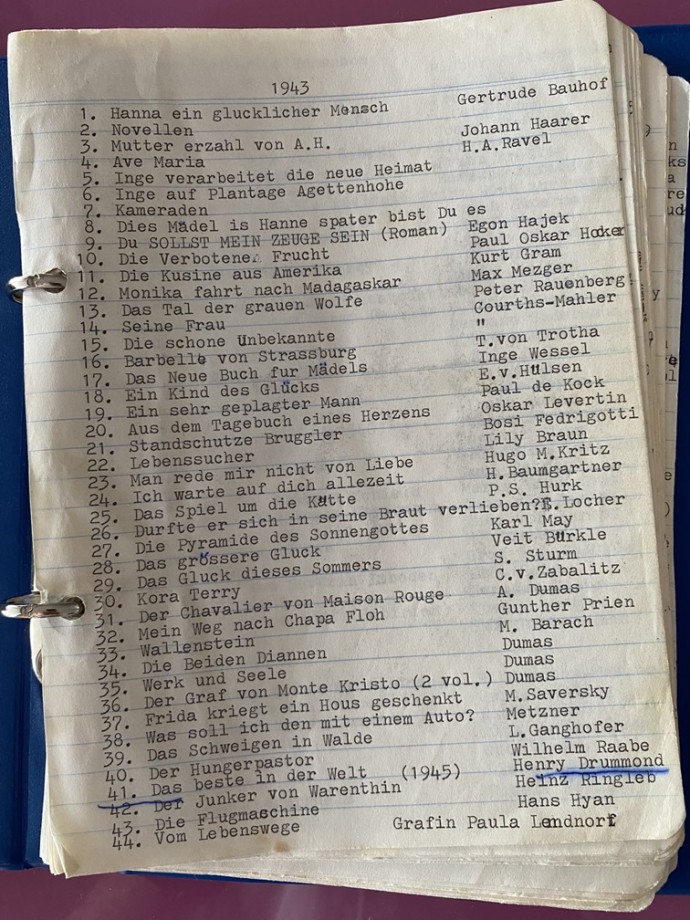 1943
1. Hanna ein glucklicher Mensch Gertrude Bauhof
2. Novellen
3. Mutter erzahl von A.H. Johann Haarer
4. Ave Maria H.A.Ravel
5. Inge verarbeitet die neue Heimat
6. Inge auf Plantage Agettenhohe
7. Kameraden
8. Dies Mädel is Hanne spater bist Du es
9. Du SOLLST MEIN ZEUGE SEIN (Roman) Egon Hajek
10. Die Verbotene. Frucht Paul Oskar Hocker
11. Die Kusine aus Amerika Kurt Gram
12. Monika fahrt nach Madagaskar Max Mezger
13. Das Tal der grauen Wolfe Peter Rauenberg
14. Seine Frau Courths-Mahler
15. Die schone Unbekannte "
16. Barbelle von Strassburg T.von Trotha
17. Das Neue Buch fur Mädels Inge Wessel
18. Ein Kind des Glücks E.v.Hülsen
19. Ein sehr geplagter Mann Paul de Kock
20. Aus dem Tagebuch eines Herzens Oskar Levertin
21. Standschutze Bruggler Bosi Fedrigotti
22. Lebenssucher Lily Braun
23. Man rede mir nicht von Liebe Hugo M.Kritz
24. Ich warte auf dich allezeit H.Baumgartner
25. Das Spiel um die Kätte P.S. Hurk
26. Durfte er sich in seine Braut verlieben?E.Locher
27. Die Pyramide des Sonnengottes Karl May
28. Das grössere Gluck Veit Bürkle
29. Das Gluck dieses Sommers S. Sturm
30. Kora Terry C.v.Zabalitz
31. Der Chavalier von Maison Rouge A. Dumas
32. Mein Weg nach Chapa Floh Gunther Prien
33. Wallenstein M. Barach
34. Die Beiden Diannen Dumas
35. Werk und Seele Dumas
36. Der Graf von Monte Kristo (2 vol.) Dumas
37. Frida kriegt ein Hous geschenkt M.Saversky
38. Was soll ich den mit einem Auto? Metzner
39. Das Schweigen in Walde L.Ganghofer
40. Der Hungerpastor Wilhelm Raabe
41. Das beste in der Welt (1945) Henry Drummond
42. Der Junker von Warenthin Heinz Ringleb
43. Die Flugmaschine Hans Hyan
44. Vom Lebenswege Grafin Paula Lendnorf